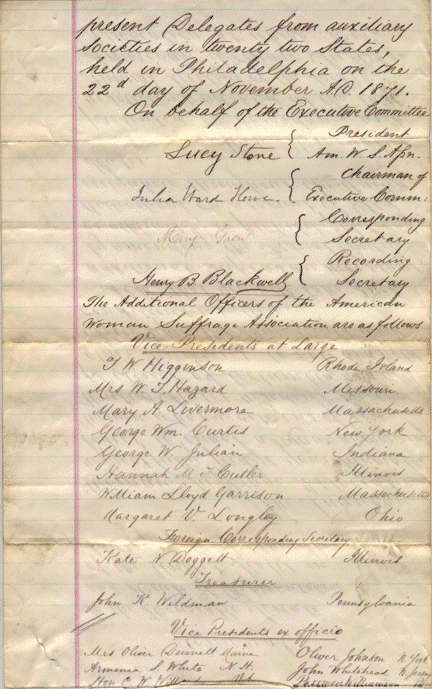 present Delegates from auxiliary
Societies in twenty two States,
held in Philadelphia on the
22d day of November A.D. 1871.
On behalf of the Executive Committee
Lucy Stone { President
Am. W. S. Assn.
Julia Ward Howe. { Chairman of
Executive Comm:
Mary Grew { Corresponding
Secretary
Henry B. Blackwell { Recording
Secretary
The Additional Officers of the American
Woman Suffrage Association are as follows
Vice Presidents at Large
T W Higginson Rhode Island
Mrs W. T. Hazard Missouri
Mary A. Livermore Massachusetts
George Wm. Curtis New York
George W. Julian Indiana
Hannah M. T. Cutler Illinois
William Lloyd Garrison Massachusetts
Margaret V. Longley Ohio
Foreign Corresponding Secretary
Kate N. Doggett Illinois
Treasurer
John K. Wildman Pennsylvania
Vice Presidents ex officio
Mrs Oliver Dennett Maine Oliver Johnson N. York
Armenia S. White N. H. John Whitehead N. Jersey
Hon C. W. Passmore Williamson